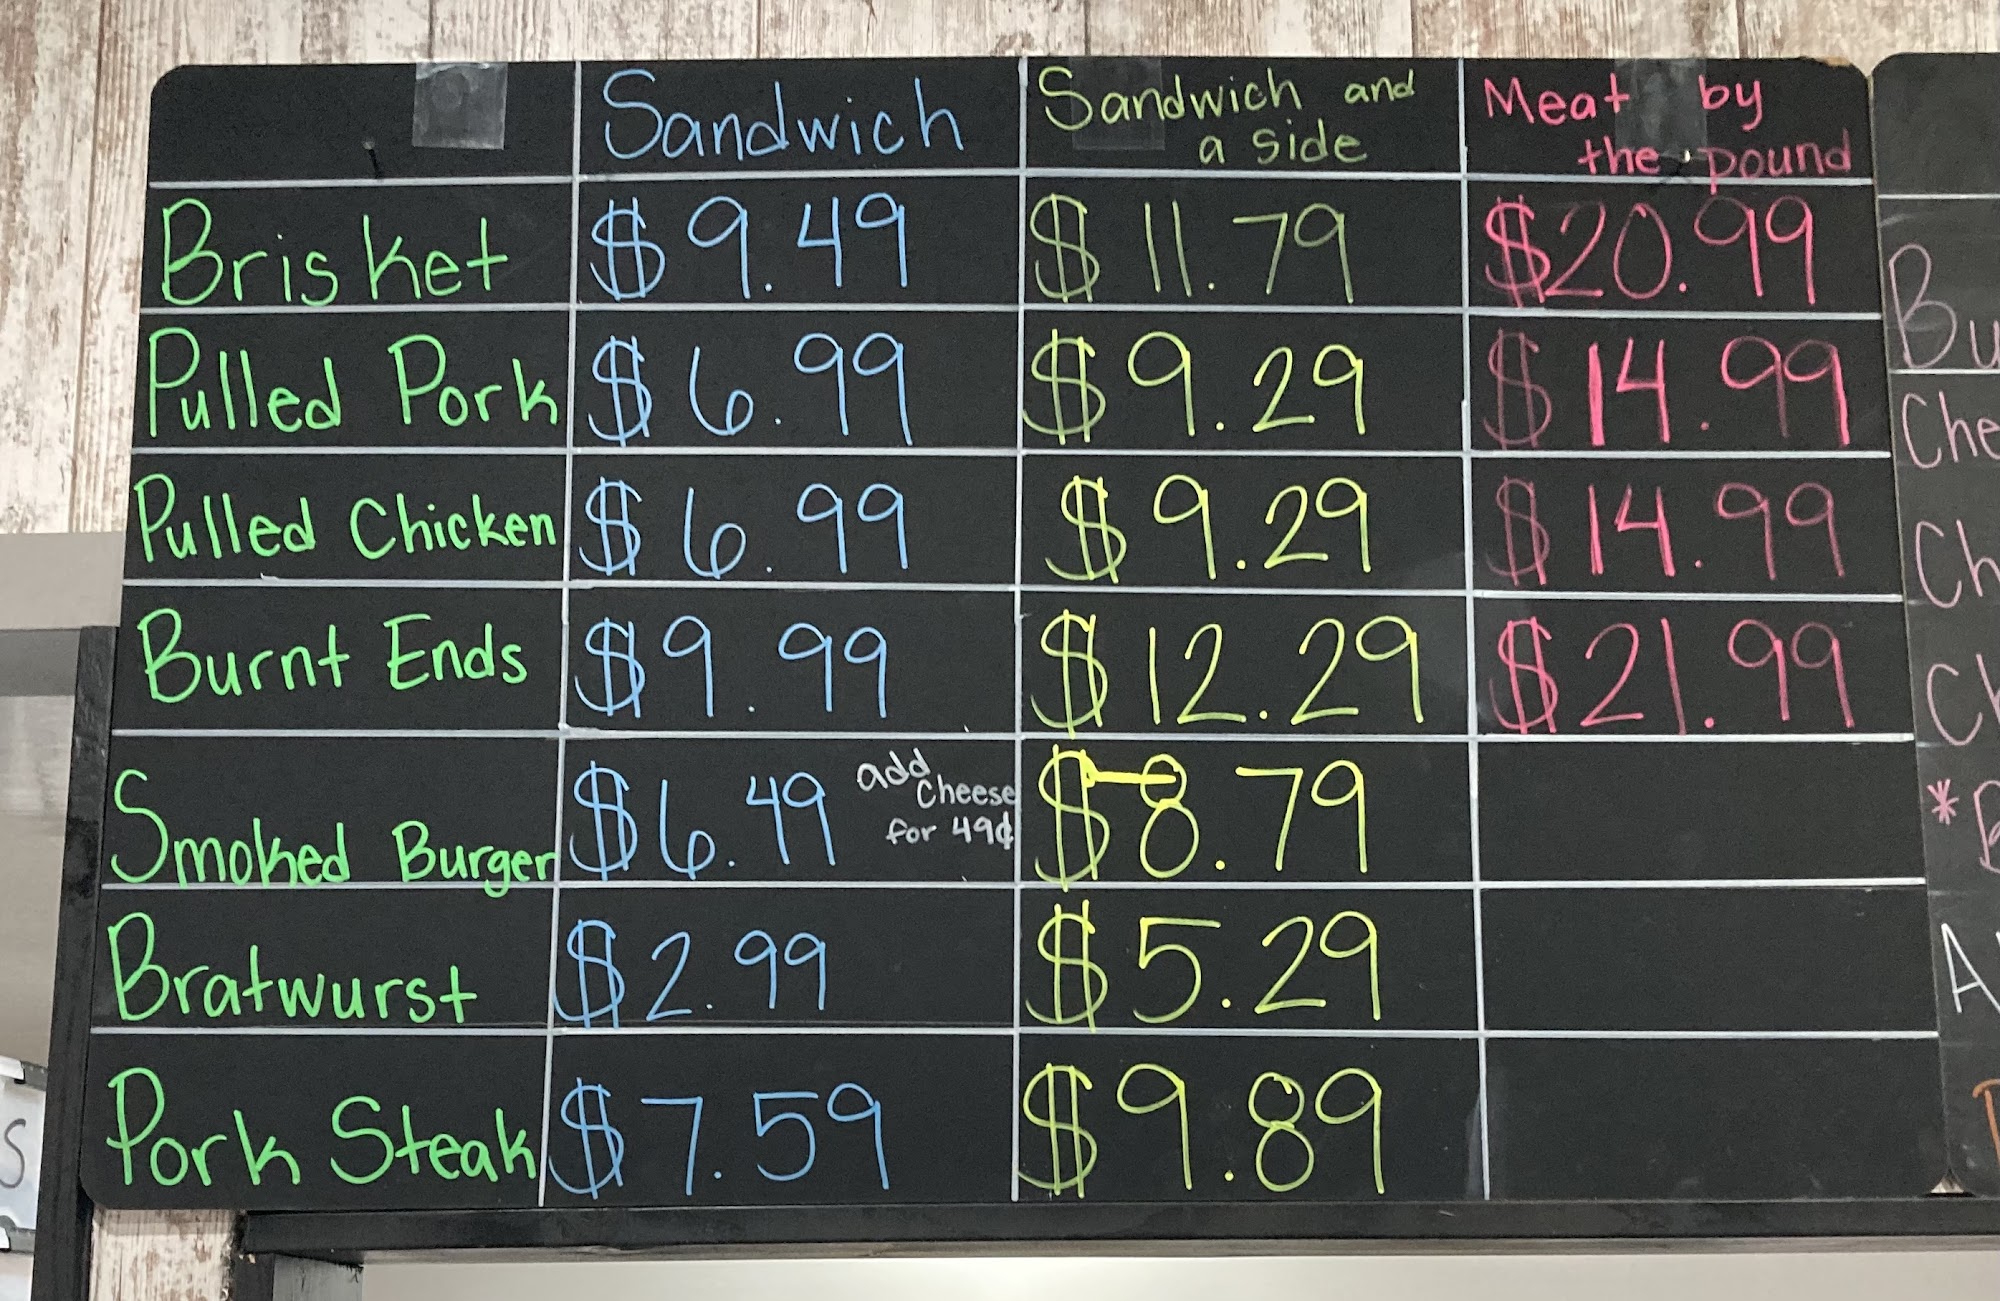 Sandwich
Sandwich and
a side
Meat by
the pound
Brisket $9.49 $11.79 $20.99
Pulled Pork $6.99 $9.29 $14.99
Pulled Chicken $6.99 $9.29 $14.99
Burnt Ends $9.99 $12.29 $21.99
Smoked Burger $6.49
add
Cheese
for 49¢
$8.79
Bratwurst $2.99 $5.29
Pork Steak $7.59 $9.89